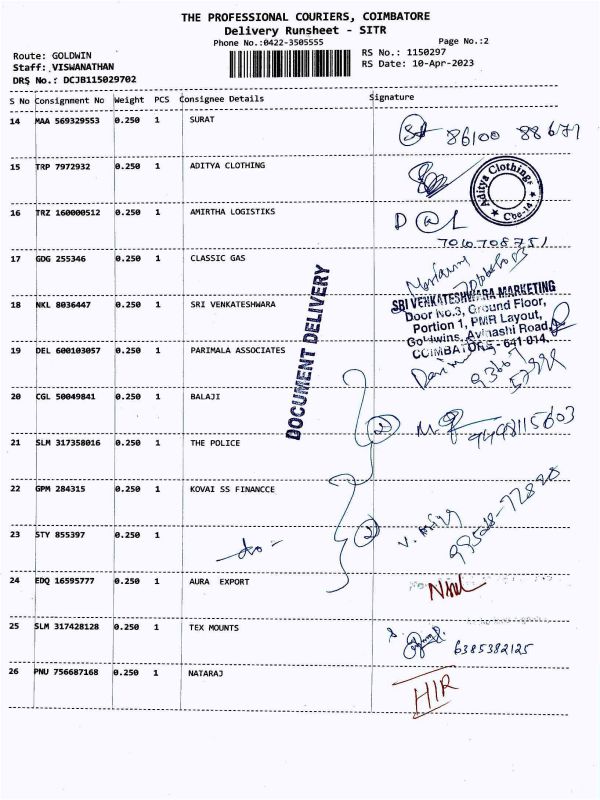 THE PROFESSIONAL COURIERS, COIMBATORE
Delivery Runsheet - SITR
Phone No.:0422-3505555
Page No.:2
Route: GOLDWIN
Staff: VISWANATHAN
DRS No.: DCJB115029702
RS No.: 1150297
RS Date: 10-Apr-2023
S No Consignment No Weight PCS Consignee Details Signature
14 MAA 569329553 0.250 1 SURAT
86100 88671
15 TRP 7972932 0.250 1 ADITYA CLOTHING
Aditya Clothing
Cbe-14
16 TRZ 160000512 0.250 1 AMIRTHA LOGISTIKS
17 GDG 255346 0.250 1 CLASSIC GAS
DOCUMENT DELIVERY
18 NKL 8036447 0.250 1 SRI VENKATESHWARA
SRI VENKATESHWARA MARKETING
Door No.3, Ground Floor,
Portion 1, PMR Layout,
Goldwins, Avinashi Road,
COIMBATORE - 641 014.
19 DEL 600103057 0.250 1 PARIMALA ASSOCIATES
20 CGL 50049841 0.250 1 BALAJI
21 SLM 317358016 0.250 1 THE POLICE
22 GPM 284315 0.250 1 KOVAI SS FINANCCE
23 STY 855397 0.250 1
24 EDQ 16595777 0.250 1 AURA EXPORT
25 SLM 317428128 0.250 1 TEX MOUNTS
6385382125
26 PNU 756687168 0.250 1 NATARAJ